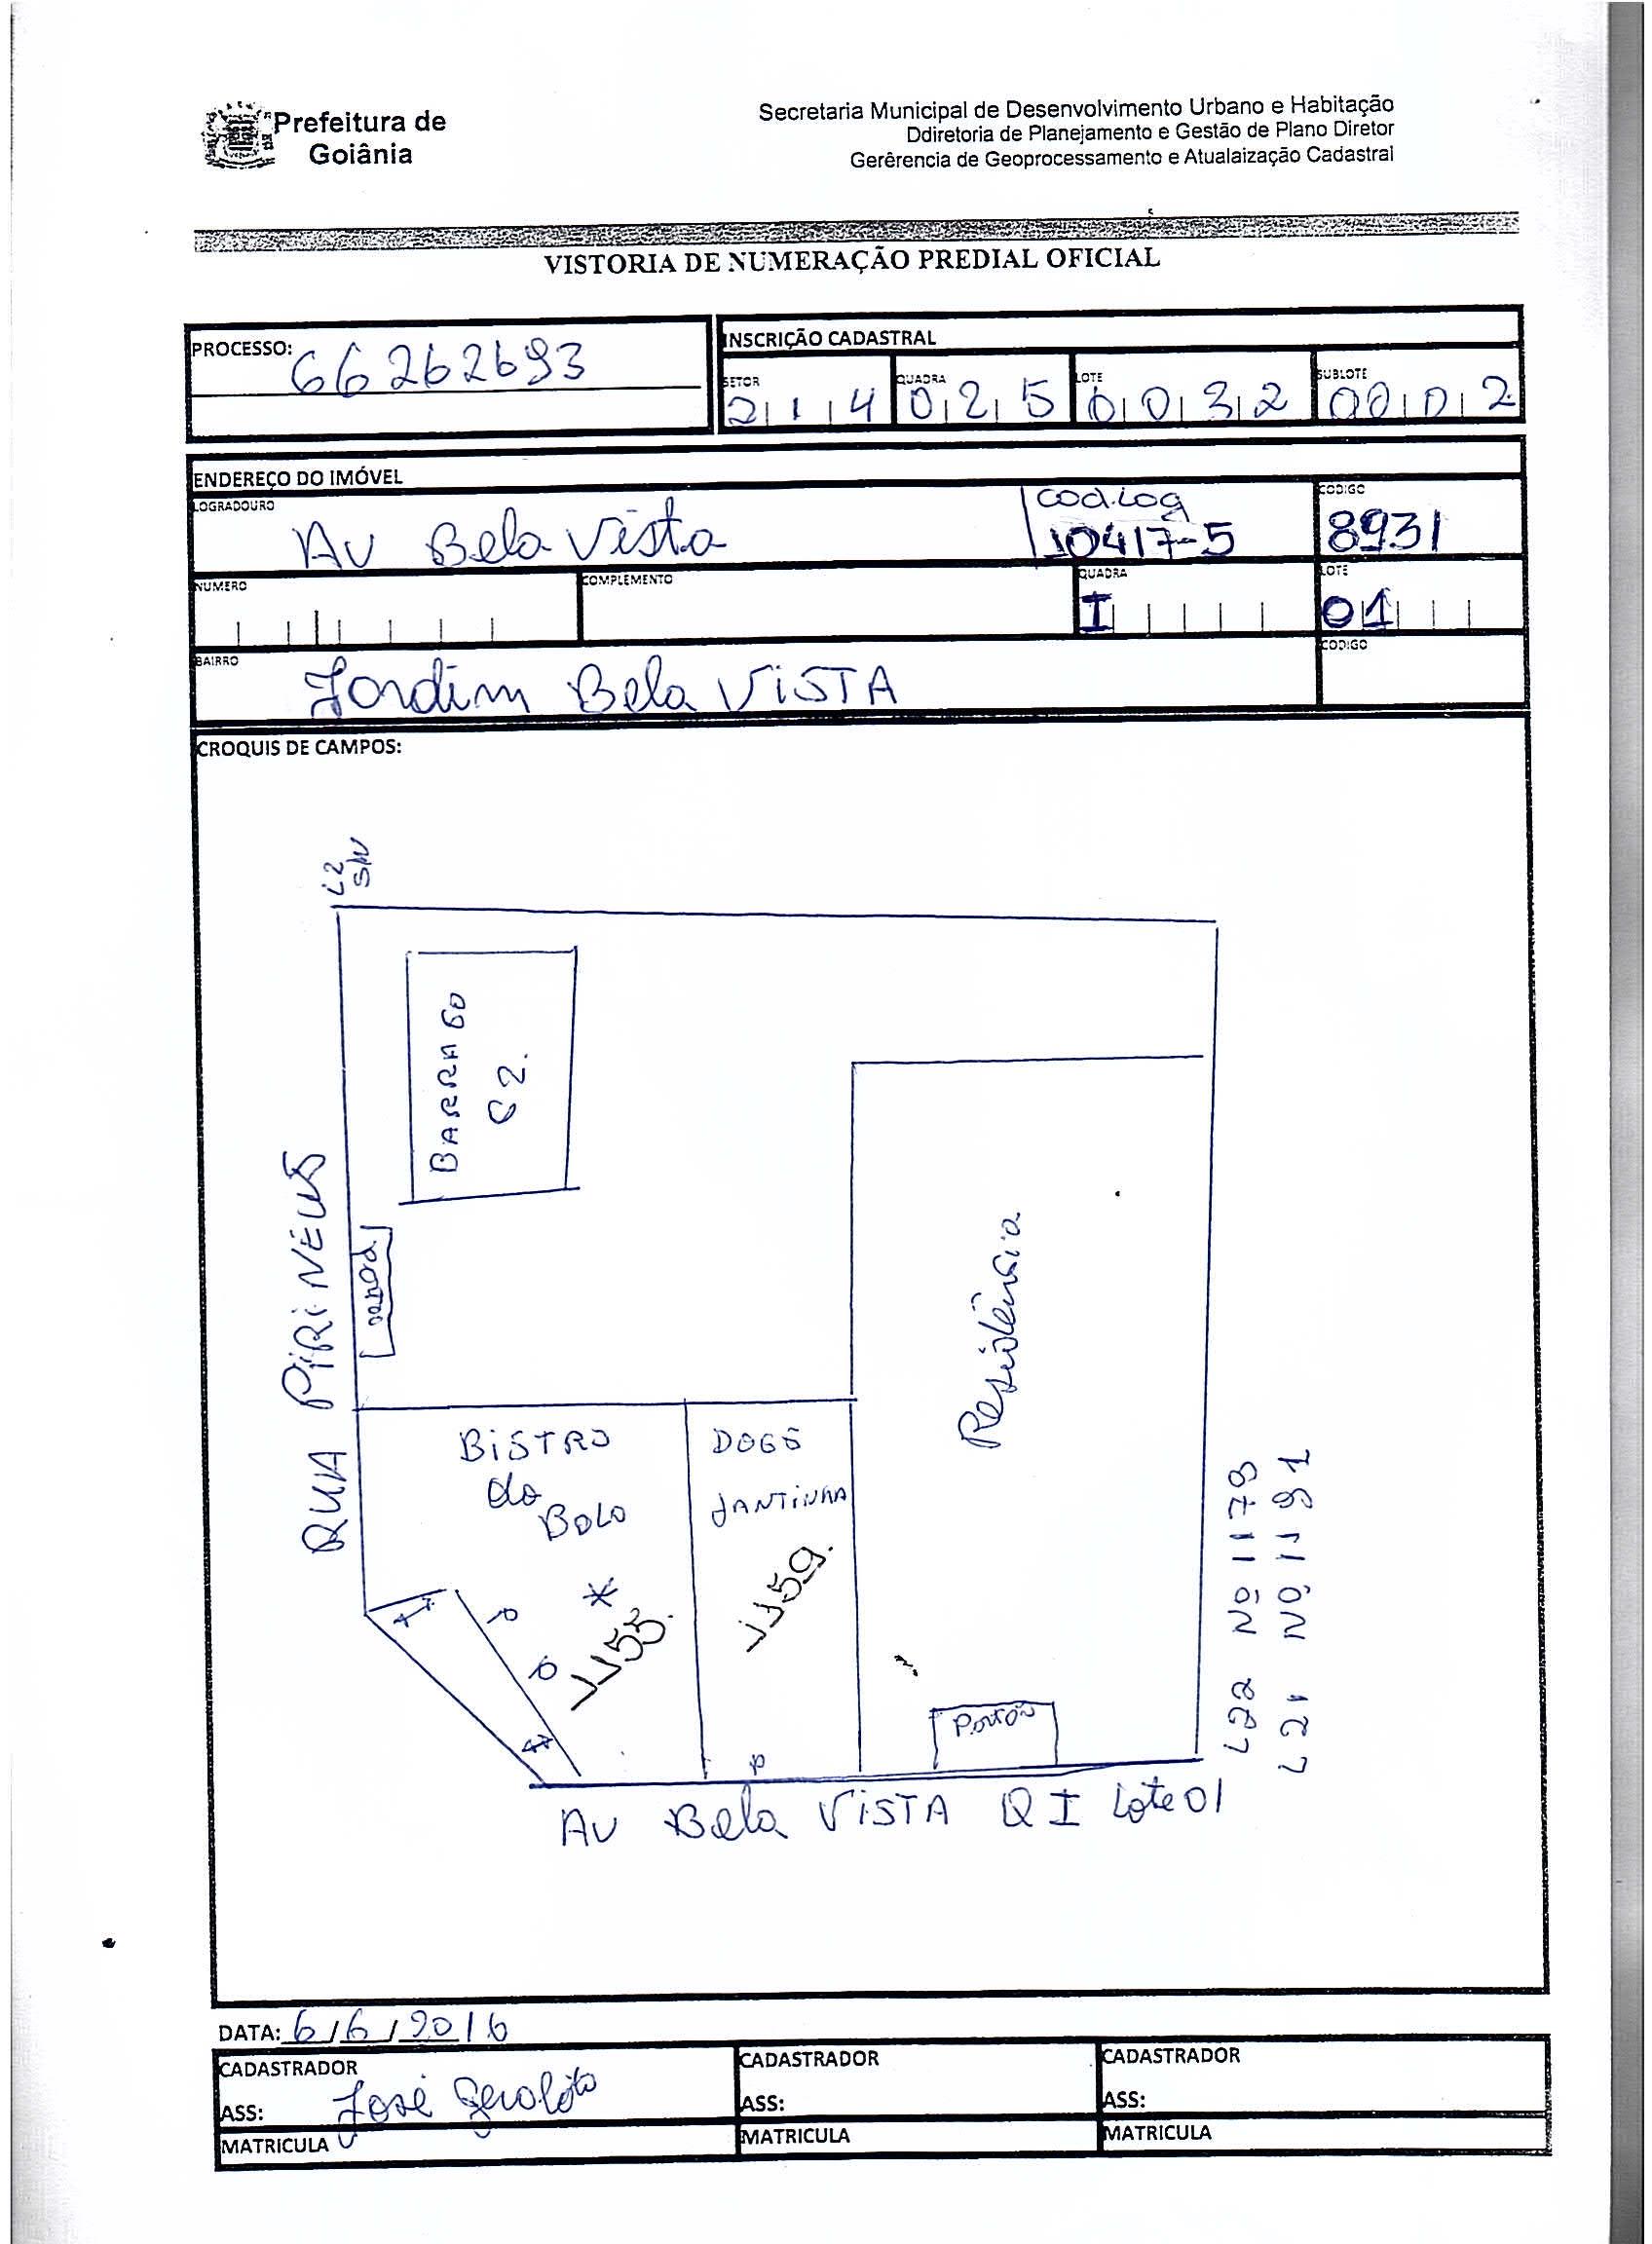 Prefeitura de
Goiânia
Secretaria Municipal de Desenvolvimento Urbano e Habitação
Ddiretoria de Planejamento e Gestão de Plano Diretor
Gerêrencia de Geoprocessamento e Atualaização Cadastral
VISTORIA DE NUMERAÇÃO PREDIAL OFICIAL
PROCESSO: 66262693
INSCRIÇÃO CADASTRAL
SETOR QUADRA LOTE SUBLOTE
214 025 0032 0002
ENDEREÇO DO IMÓVEL
LOGRADOURO CODIGO
Av Bela Vista cod.Log 10417-5 8931
NUMERO COMPLEMENTO QUADRA LOTE
I 01
BAIRRO CODIGO
Jardim Bela ViSTA
CROQUIS DE CAMPOS:
L2
S/N
BARRACO
C2.
RUA PiRiNÉUS
Portão
Residência
BiSTRO
do
BOLO
*
1155.
DOGS
JANTiNHA
1159.
Portão
L22 Nº 1179
L21 Nº 1191
AV Bela ViSTA Q I Lote 01
DATA: 6/6/2016
CADASTRADOR CADASTRADOR CADASTRADOR
ASS: José ASS: ASS:
MATRICULA MATRICULA MATRICULA